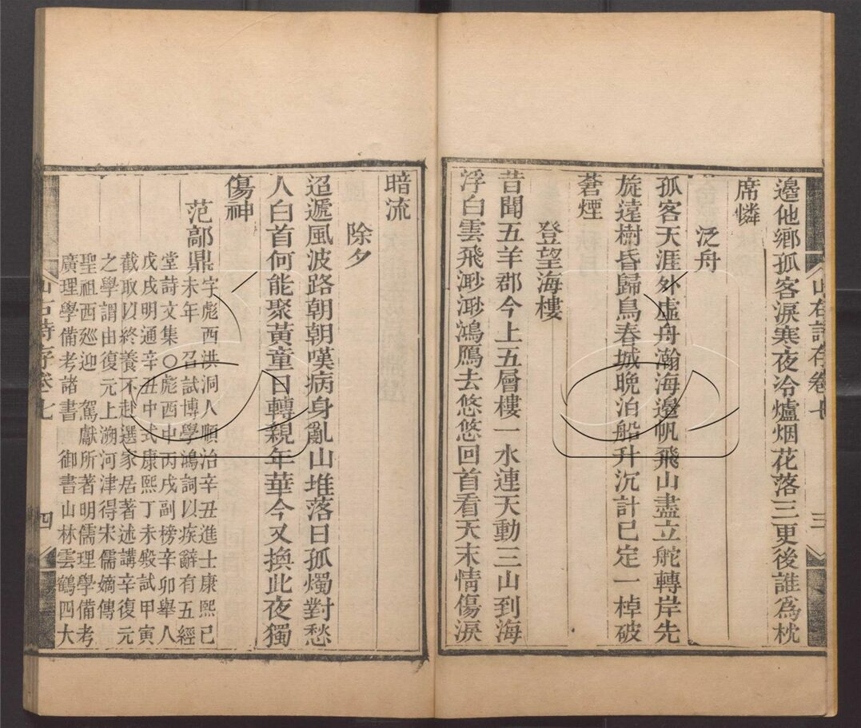 邉他鄉孤客淚寒夜冷爐烟花落三更後誰爲枕
席憐
泛舟
孤客天涯外虛舟瀚海邊帆飛山盡立舵轉岸先
旋遠樹昏歸鳥春城晚泊船升沉計已定一棹破
蒼煙
登望海樓
昔聞五羊郡今上五層樓一水連天動三山到海
浮白雲飛渺渺鴻鴈去悠悠回首看天末情傷淚
山右詩存卷七
三
暗流
除夕
迢遞風波路朝朝嘆病身亂山堆落日孤燭對愁
人白首何能聚黃童日轉親年華今又換此夜獨
傷神
范鄗鼎
字彪西洪洞人順治辛丑進士康熙己
未年 召試博學鴻詞以疾辭有五經
堂詩文集〇彪西中丙戌副榜辛卯舉人
戊戌明通辛丑中式康熙丁未殿試甲寅
截取以終養不赴選家居著述講辛復元
之學謂由復元上溯河津得宋儒嫡傳
聖祖西廵迎 駕獻所著明儒理學備考
廣理學備考諸書 御書山林雲鶴四大
山右詩存卷七
四